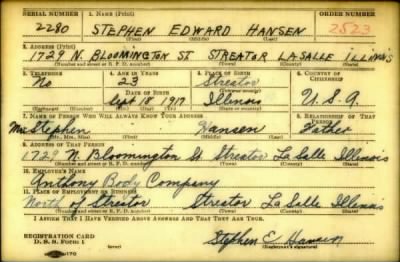 SERIAL NUMBER 1. NAME (Print) ORDER NUMBER
2280 STEPHEN EDWARD HANSEN 2523
(First) (Middle) (Last)
2. ADDRESS (Print)
1729 N. BLOOMINGTON ST. STREATOR LASALLE ILLINOIS
(Number and street or R. F. D. number) (Town) (County) (State)
3. TELEPHONE 4. AGE IN YEARS 5. PLACE OF BIRTH 6. COUNTRY OF CITIZENSHIP
No 23 Streator
DATE OF BIRTH (Town or county)
Sept 18 1917 Illinois U.S.A.
(Exchange) (Number) (Mo.) (Day) (Yr.) (State or country)
7. NAME OF PERSON WHO WILL ALWAYS KNOW YOUR ADDRESS 8. RELATIONSHIP OF THAT PERSON
Mr. Stephen Hansen Father
(Mr., Mrs., Miss) (First) (Middle) (Last)
9. ADDRESS OF THAT PERSON
1729 N. Bloomington St. Streator LaSalle Illinois
(Number and street or R. F. D. number) (Town) (County) (State)
10. EMPLOYER'S NAME
Anthony Body Company
11. PLACE OF EMPLOYMENT OR BUSINESS
North of Streator Streator LaSalle Illinois
(Number and street or R. F. D. number) (Town) (County) (State)
I AFFIRM THAT I HAVE VERIFIED ABOVE ANSWERS AND THAT THEY ARE TRUE.
REGISTRATION CARD
D. S. S. Form 1 (over) Stephen E Hansen
(Registrant's signature)